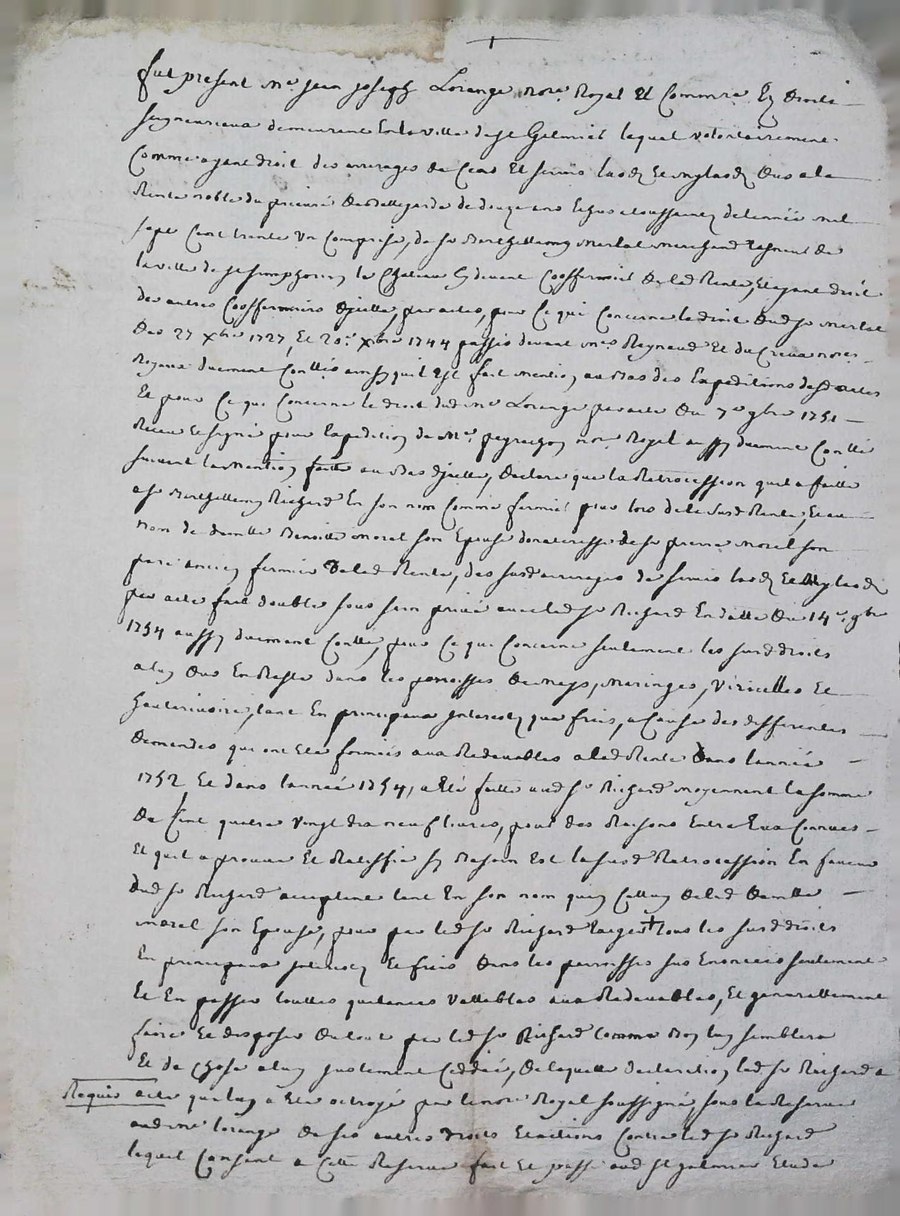 fut present Me Jean Joseph Lorange nore Royal Et Commre Es droits
seigneuriaux demeurant En la ville de St Galmier lequel volontairement
Comme ayant droit des arrerages de Cens Et servis laods Et mylaods dus a la
Rente noble du prieuré de Bellegarde de douze ans Echus a toussaints de lannée mil
sept Cent trente un Compris, de sr Barthellemy merlat marchand
la ville de St simphorien le Chateau Cydevant Cooffermier de lad Rente, Et ayant droit
des autres Cooffermiers dicelle, par actes, pour Ce qui Concerne le droit dud sr merlat
des 27 xbre 1727, Et 20e xbre 1744 passés devant mes Reynaud Et du Creux nores
Royaux duement Contllés ainsy quil Est fait mention au bas des Expeditions desd actes
Et pour Ce qui Concerne le droit dud Me Lorange par acte du 7e 9bre 1751
Receu Et signé pour Expedition de Me peyragon nore Royal aussy duement Contllé
suivant la mention faitte au bas dicelle, declare que la Retrocession quil a faitte
a sr Barthellemy Richard En son nom Comme fermier pour lors de la susd Rente, Et au
nom de damlle Benoitte morel son Epouse donateresse de sr pierre morel son
pere ancien fermier de lad Rente, des susd arrerages de servis laods Et Mylaods
par acte fait double sous sein privé avec led sr Richard En datte du 14e 9bre
1754 aussy duement Contllé, pour Ce qui Concerne seulement les susd droits
a luy dus En Reste dans les parroisses de meys, maringes, Viricelles Et
hauterivoire, tant En principaux Interests que frais, a Cause des differentes
demandes qui ont Eté formées aux Redevables a lad Rente dans lannée
1752 Et dans lannée 1754, a Eté faitte aud sr Richard moyennant la somme
de Cent quatre vingt dix neuf livres, pour des Raisons Entre Eux Connues
Et quil aprouve Et Ratiffie sy Besoin Est la susd Retrocession En faveur
dud sr Richard acceptant tant En son nom quen Celluy de lad damlle
morel son Epouse, pour par led sr Richard Exiger tous les susd droits
En principaux Interests Et frais dans les parroisses sus Enoncées seulement
Et En passer touttes quitances vallables aux Redevables, Et generallement
faire Et disposer du tout par led sr Richard Comme Bon luy semblera
Et de Chose a luy justement Ceddée, de laquelle declaration led sr Richard a
Requis acte qui luy a Eté octroyé par le nore Royal soussigné, sous la Reserve
aud me lorange de ses autres droits Et actions Contre led sr Richard
lequel Consent a Cette Reserve fait Et passé aud St galmier Etude